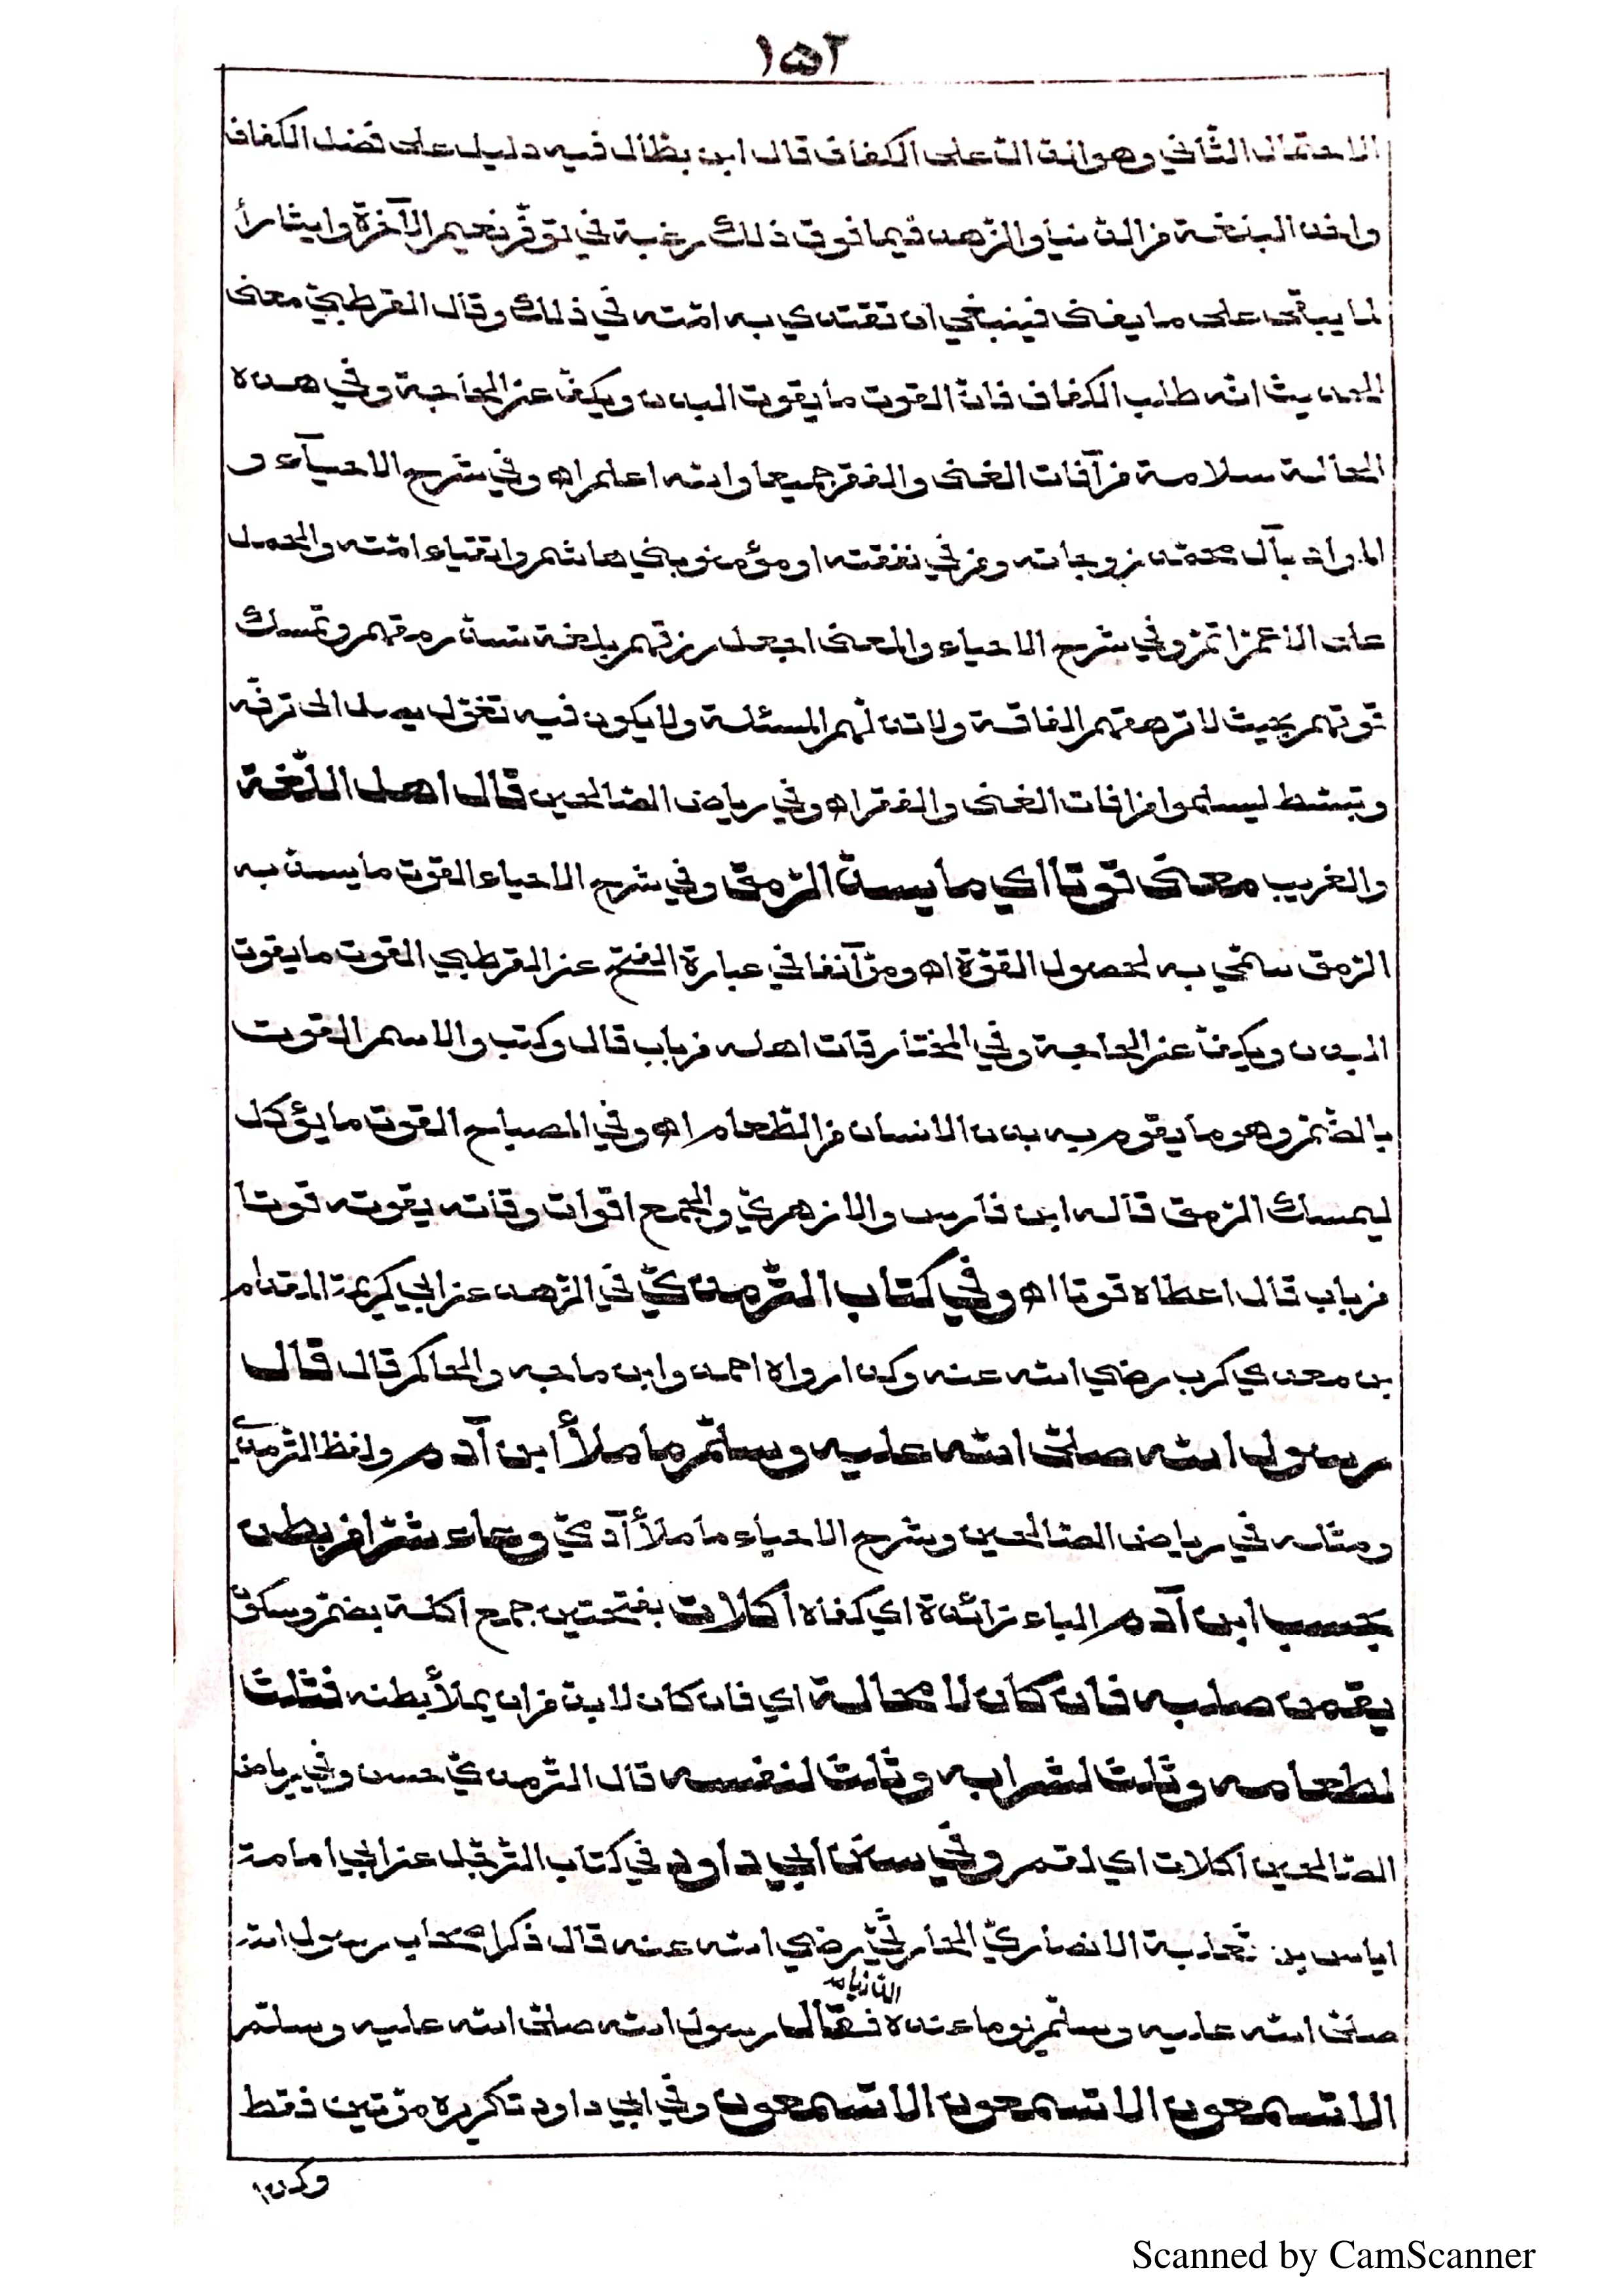 ١٥٢
الاحتمال الثاني وهو انه الدّ على الكفاف قال ابن بطّال فيه دليل على فضل الكفاف
واخذ البلغة من الدّنيا والزّهد فيما فوق ذلك رغبة في توفّر نعيم الآخرة وايثاراً
لما يبقى على ما يفنى فينبغي ان تقتدي به امّته في ذلك وقال القرطبيّ معنى
الحديث انّه طلب الكفاف فانّ القوت ما يقوت البدن ويكفّ عن الحاجة وفي هذه
الحالة سلامة من آفات الغنى والفقر جميعا والله اعلم اه وفي شرح الاحيآء و
المراد بآل محمّد زوجاته ومن في نفقته او مؤمنو بني هاشم واتقياء امّته والحمل
على الاعمّ اتمّ وفي شرح الاحياء والمعنى اجعل رزقهم بلغة تسدّ رمقهم وتمسك
قوتهم بحيث لا ترهقهم الفاقة ولا تذلّهم المسئلة ولا يكون فيه تغوّل يصل الى ترفّه
وتبسّط ليسلموا من افات الغنى والفقر اه وفي رياض الصّالحين قال اهل اللّغة
والغريب معنى قوتا اي ما يسدّ الرّمق وفي شرح الاحياء القوت ما يسدّ به
الرّمق سمّي به لحصول القوّة اه ومرّ آنفا في عبارة الفتح عن القرطبي القوت ما يقوت
البدن ويكفّ عن الحاجة وفي المختار قات اهله من باب قال وكتب والاسم القوت
بالضّمّ وهو ما يقوم به بدن الانسان من الطّعام اه وفي المصباح القوت ما يؤكل
ليمسك الرّمق قاله ابن فارس والازهريّ والجمع اقوات وقاته يقوته قوتا
من باب قال اعطاه قوتا اه وفي كتاب التّرمذيّ في الزّهد عن ابي كريمة المقدام
بن معدي كرب رضي الله عنه وكذا رواه احمد وابن ماجه والحاكم قال قال
رسول الله صلّى الله عليه وسلّم ما ملأ ابن آدم ولفظ التّرمذيّ
ومثله في رياض الصّالحين وشرح الاحياء ما ملأ آدميّ وعاء شرّا من بطن
بحسب ابن آدم الباء زائدة اي كفاه اكلات بفتحتين جمع اكلة بضمّ وسكون
يقمن صلبه فان كان لا محالة اي فان كان لا بدّ من ان يملأ بطنه فثلث
لطعامه وثلث لشرابه وثلث لنفسه قال التّرمذيّ حسن وفي رياض
الصّالحين اكلات اي لقم وفي سنن ابي داود في كتاب التّرجّل عن ابي امامة
اياس بن ثعلبة الانصاريّ الحارثيّ رضي الله عنه قال ذكر اصحاب رسول الله
صلّى الله عليه وسلّم يوما عنده الدّنيا فقال رسول الله صلّى الله عليه وسلّم
الا تسمعون الا تسمعون الا تسمعون وفي ابي داود تكريره مرّتين فقط
وكذا
Scanned by CamScanner